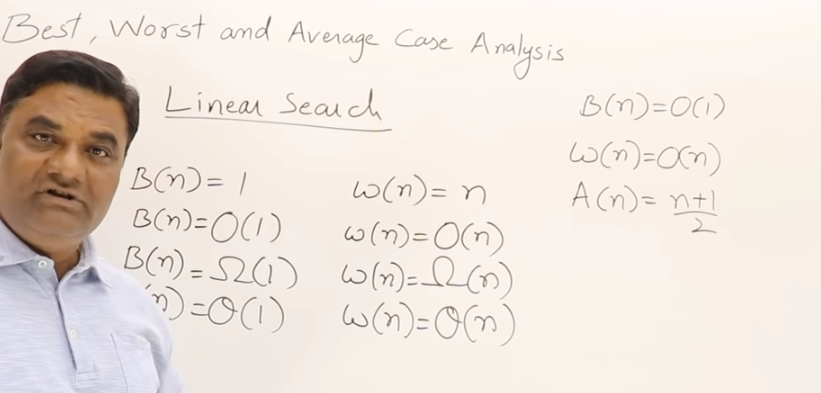 Best, Worst and Average Case Analysis
Linear Search
B(n)= 1
B(n)=O(1)
B(n)=Ω(1)
n)=Θ(1)
w(n)= n
w(n)=O(n)
w(n)=Ω(n)
w(n)=Θ(n)
B(n)=O(1)
w(n)=O(n)
A(n)= n+1
2